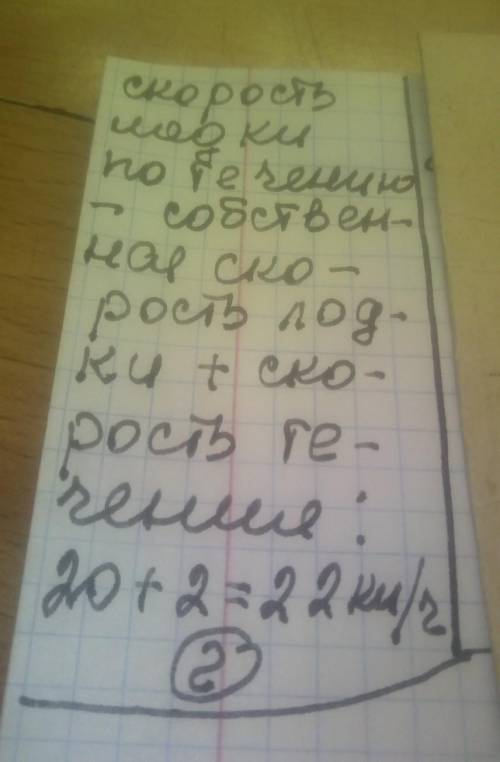 скорость
лодки
по течению
- собствен-
ная ско-
рость лод-
ки + ско-
рость те-
чения:
20 + 2 = 22 км/ч
2